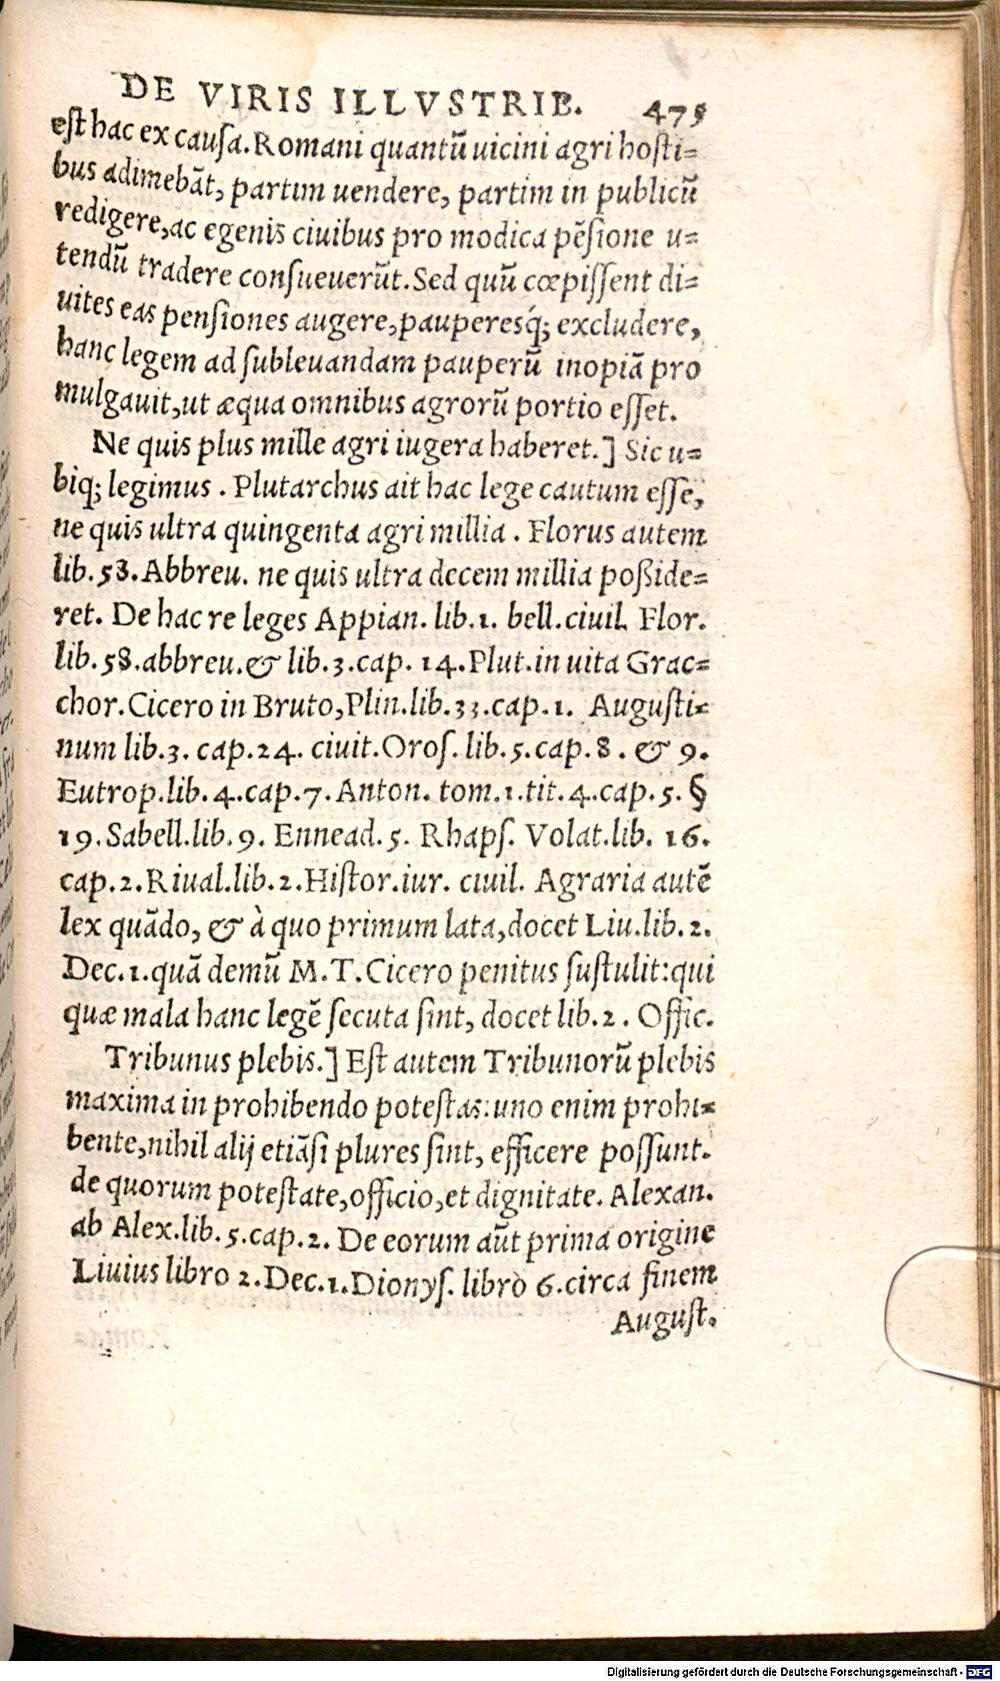 DE VIRIS ILLVSTRIB. 475
est hac ex causa. Romani quantũ uicini agri hosti=
bus adimebãt, partim uendere, partim in publicũ
redigere, ac egenis ciuibus pro modica pẽsione u=
tendũ tradere consueuerũt. Sed quũ cœpissent di=
uites eas pensiones augere, pauperesq́; excludere,
hanc legem ad subleuandam pauperũ inopiã pro
mulgauit, ut æqua omnibus agrorũ portio esset.
Ne quis plus mille agri iugera haberet.] Sic u=
biq; legimus. Plutarchus ait hac lege cautum esse,
ne quis ultra quingenta agri millia. Florus autem
lib. 58. Abbreu. ne quis ultra decem millia poßide=
ret. De hac re leges Appian. lib. 1. bell. ciuil. Flor.
lib. 58. abbreu. & lib. 3. cap. 14. Plut. in uita Grac=
chor. Cicero in Bruto, Plin. lib. 33. cap. 1. Augusti=
num lib. 3. cap. 24. ciuit. Oros. lib. 5. cap. 8. & 9.
Eutrop. lib. 4. cap. 7. Anton. tom. 1. tit. 4. cap. 5. §
19. Sabell. lib. 9. Ennead. 5. Rhaps. Volat. lib. 16.
cap. 2. Riual. lib. 2. Histor. iur. ciuil. Agraria autẽ
lex quãdo, & à quo primum lata, docet Liu. lib. 2.
Dec. 1. quã demũ M. T. Cicero penitus sustulit: qui
quæ mala hanc legẽ secuta sint, docet lib. 2. Offic.
Tribunus plebis.] Est autem Tribunorũ plebis
maxima in prohibendo potestas: uno enim prohi=
bente, nihil alij etiãsi plures sint, efficere possunt.
de quorum potestate, officio, et dignitate. Alexan.
ab Alex. lib. 5. cap. 2. De eorum aũt prima origine
Liuius libro 2. Dec. 1. Dionys. libro 6. circa finem
August.
Digitalisierung gefördert durch die Deutsche Forschungsgemeinschaft - DFG